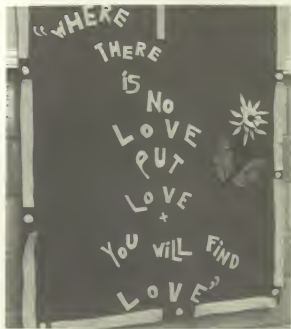 “WHERE
THERE
iS
NO
LOVE
PUT
LOVE
+
YOU WiLL FiND
LOVE”